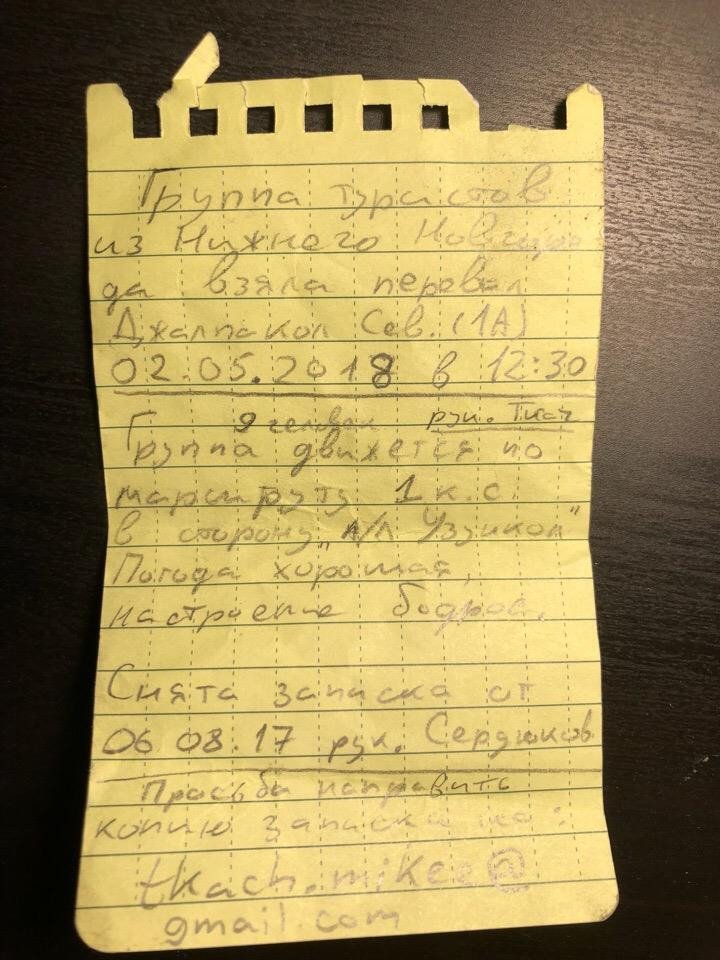 Группа туристов
из Нижнего Новгоро
да взяла перевал
Джалпакол Сев. (1А)
02.05.2018 в 12:30
9 человек рук. Ткач
Группа движется по
маршруту 1 к.с
в сторону „л/л Уззикол"
Погода хорошая,
настроение бодрое.
Снята записка от
06 08.17 рук. Сердюков
Просьба направить
копию записки на:
tkach.mikee@
gmail.com